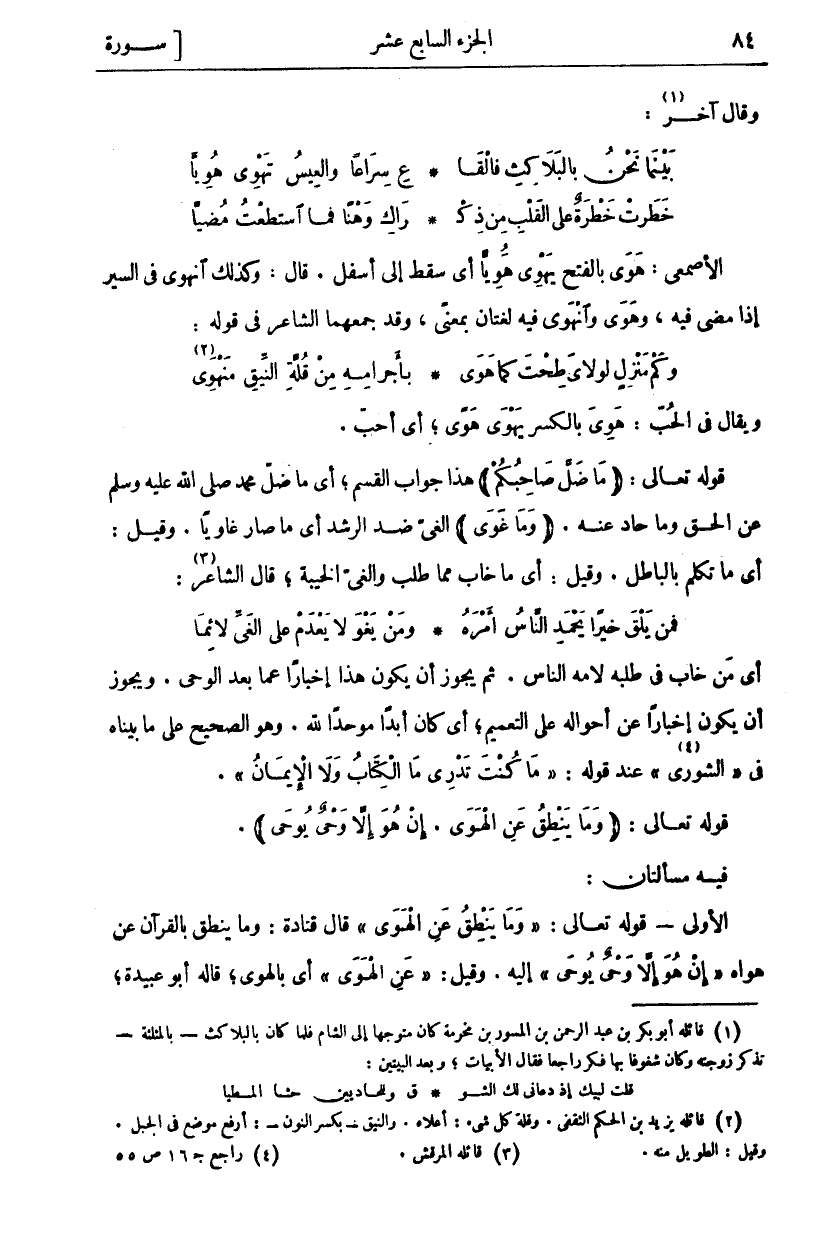 ٨٤ الجزء السابع عشر [ ســورة
وقال آخــر(١) :
بَيْنَمَا نَحْنُ بالبَلَاكِثِ فالْقَـا * عِ سِرَاعًا والعِيسُ تَهْوِى هُوِيًّا
خَطَرتْ خَطْرَةٌ على القَلْبِ مِن ذِكْـ * راكِ وَهْنًا فمـا ٱستطعْتُ مُضيًّا
الأصمعى : هَوَى بالفتح يَهْوِى هُوِيًّا أى سقط إلى أسفل . قال : وكذلك ٱنهوى فى السير
إذا مضى فيه ، وهَوَى وٱنْهَوَى فيه لغتان بمعنًى ، وقد جمعهما الشاعر فى قوله :
وكَمْ مَنْزِلٍ لولاىَ طِحْتَ كما هَوَى * بأَجرامِـهِ مِنْ قُلَّةِ النِّيقِ مُنْهَوِى(٢)
ويقال فى الحُبّ : هَوِىَ بالكسر يَهْوَى هَوًى ؛ أى أحبّ .
قوله تعـالى : ﴿ مَا ضَلَّ صَاحِبُكُمْ ﴾ هذا جواب القسم ؛ أى ما ضلّ محمد صلى الله عليه وسلم
عن الحـق وما حاد عنـه . ﴿ وَمَا غَوَى ﴾ الغىّ ضـد الرشد أى ما صار غاويًا . وقيـل :
أى ما تكلم بالباطل . وقيل : أى ما خاب مما طلب والغىّ الخيبة ؛ قال الشاعر(٣) :
فمن يَلْقَ خيرًا يَحْمَدِ النَّاسُ أَمْرَهُ * ومَنْ يَغْوَ لا يَعْدَمْ على الغَىِّ لائِمَا
أى مَن خاب فى طلبه لامه الناس . ثم يجوز أن يكون هذا إخبارًا عما بعد الوحى . ويجوز
أن يكون إخبارًا عن أحواله على التعميم ؛ أى كان أبدًا موحدًا لله . وهو الصحيح على ما بيناه
فى « الشورى(٤) » عند قوله : « مَا كُنْتَ تَدْرِى مَا الْكِتَابُ وَلَا الْإِيمَانُ » .
قوله تعـالى : ﴿ وَمَا يَنْطِقُ عَنِ الْهَوَى . إِنْ هُوَ إِلَّا وَحْىٌ يُوحَى ﴾ .
فيـه مسألتان :
الأولى — قوله تعـالى : « وَمَا يَنْطِقُ عَنِ الْهَوَى » قال قتادة : وما ينطق بالقرآن عن
هواه « إِنْ هُوَ إِلَّا وَحْىٌ يُوحَى » إليه . وقيل : « عَنِ الْهَوَى » أى بالهوى ؛ قاله أبو عبيدة ؛
(١) قائله أبو بكر بن عبد الرحمن بن المسور بن مخرمة كان متوجها إلى الشام فلما كان بالبلاكث — بالمثلثة —
تذكر زوجته وكان شغوفا بها فكر راجعا فقال الأبيات ؛ وبعد البيتين :
قلت لبيك إذ دعانى لك الشـو * ق وللحاديين حثـا المـطيا
(٢) قائله يزيد بن الحكم الثقفى . وقلة كل شىء : أعلاه . والنيق — بكسر النون — : أرفع موضع فى الجبل .
وقيل : الطويل منه . (٣) قائله المرقش . (٤) راجع جـ ١٦ ص ٥٥